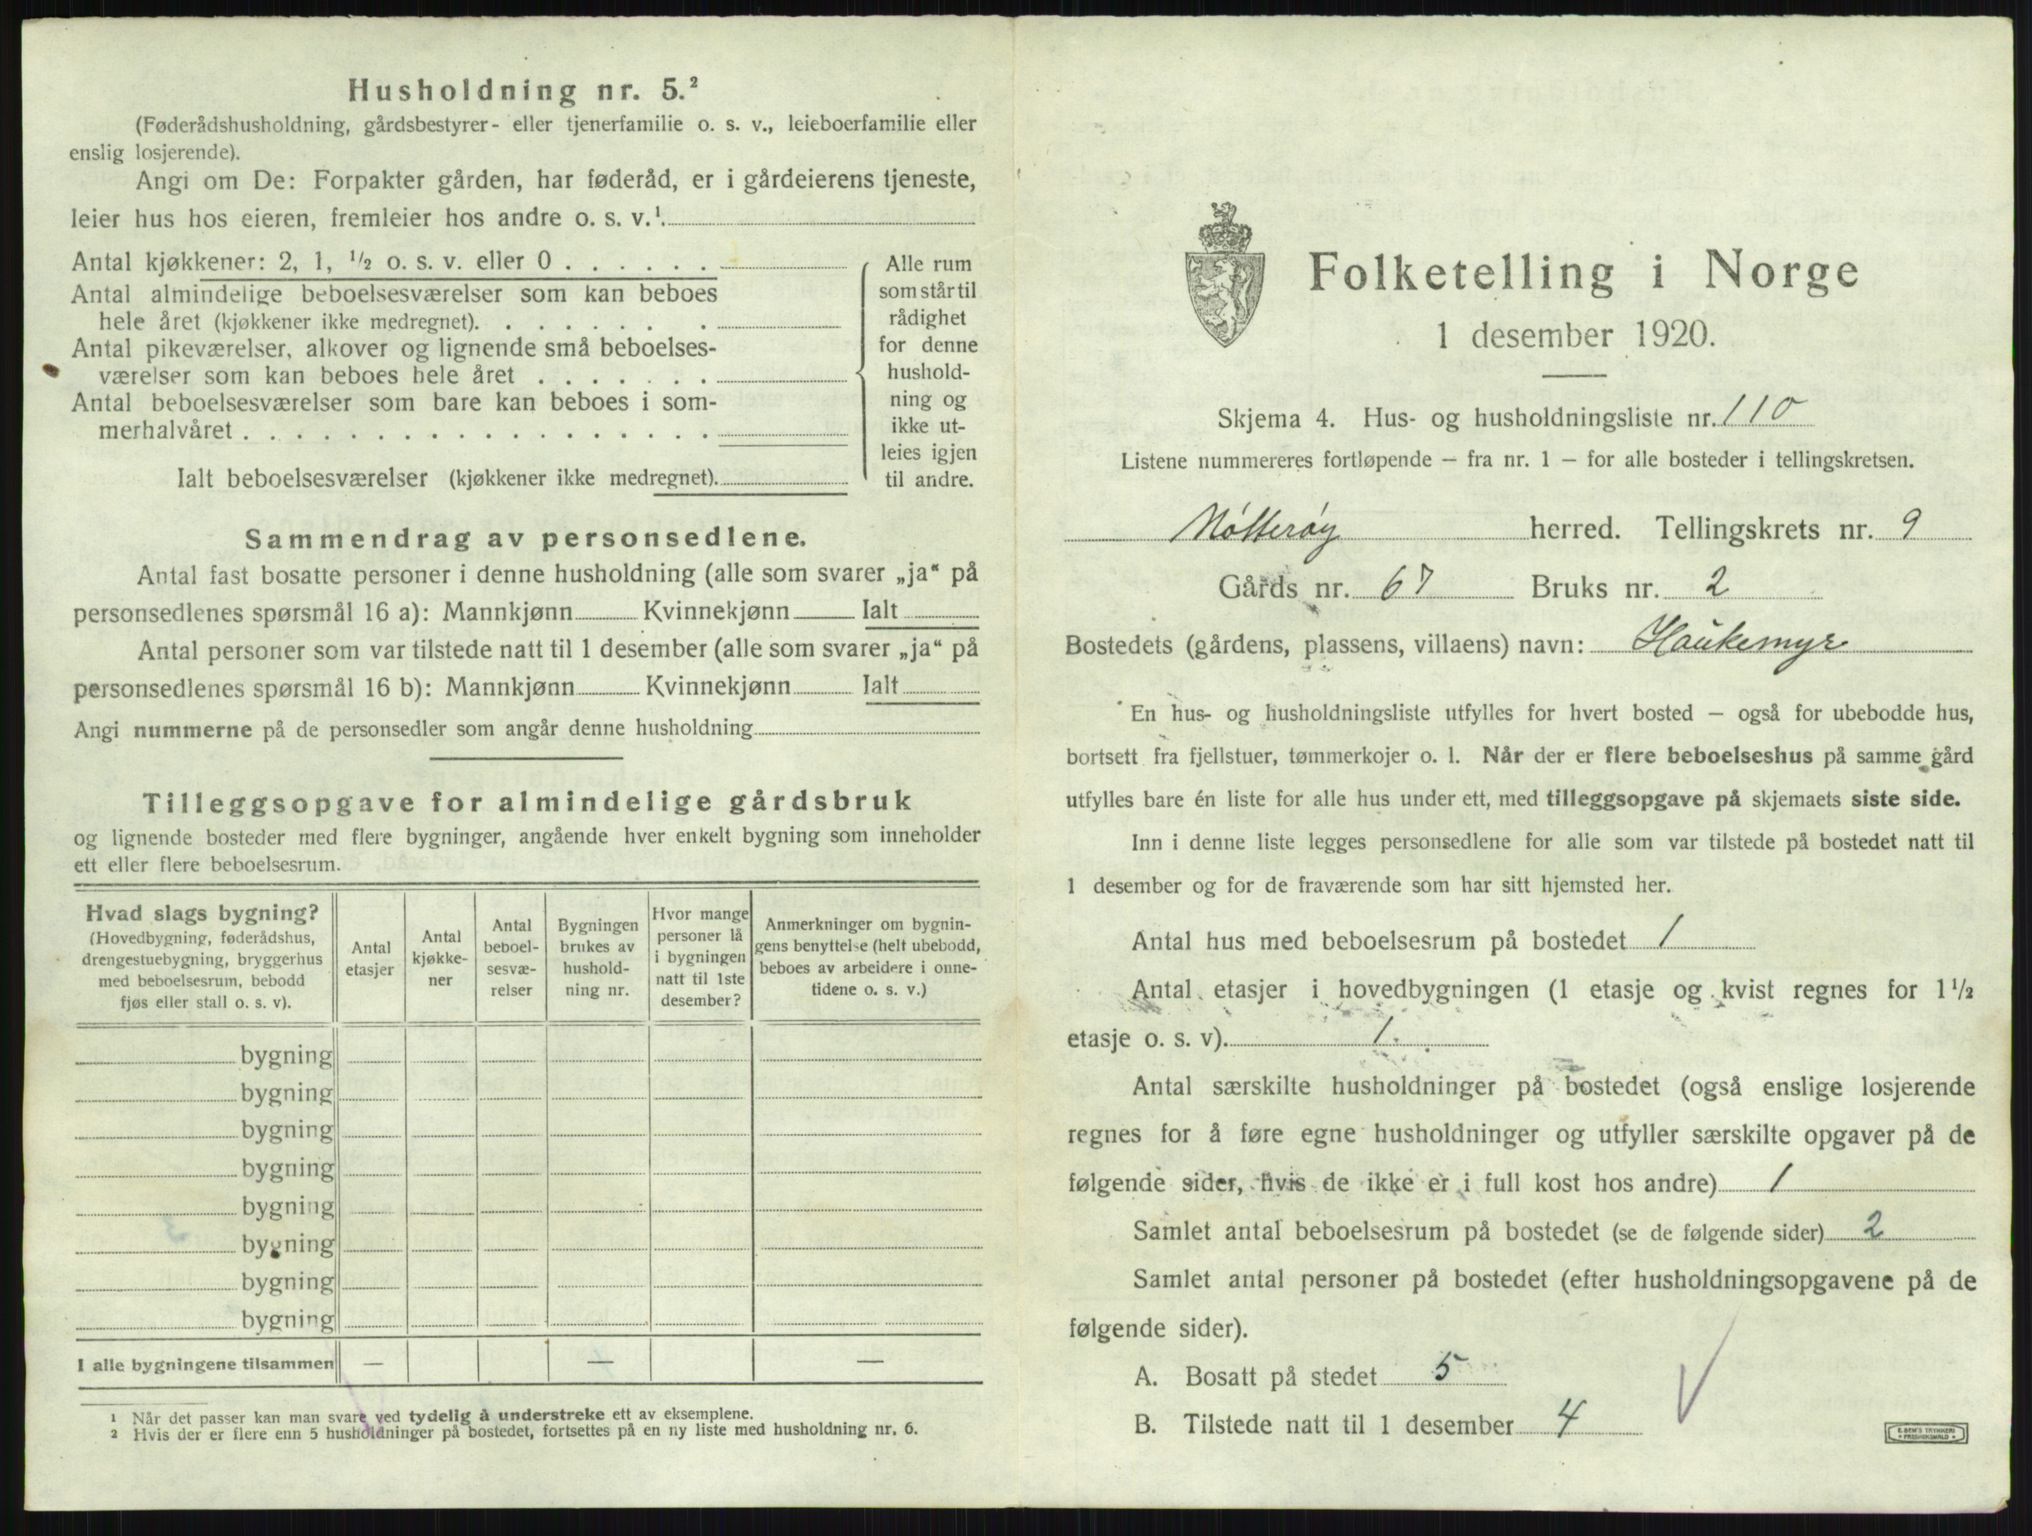 Husholdning nr. 5.²
(Føderådshusholdning, gårdsbestyrer- eller tjenerfamilie o. s. v., leieboerfamilie eller
enslig losjerende).
Angi om De: Forpakter gården, har føderåd, er i gårdeierens tjeneste,
leier hus hos eieren, fremleier hos andre o. s. v.¹
Antal kjøkkener: 2, 1, ½ o. s. v. eller 0
Antal almindelige beboelsesværelser som kan beboes
hele året (kjøkkener ikke medregnet).
Antal pikeværelser, alkover og lignende små beboelses-
værelser som kan beboes hele året
Antal beboelsesværelser som bare kan beboes i som-
merhalvåret
Ialt beboelsesværelser (kjøkkener ikke medregnet).
Alle rum
som står til
rådighet
for denne
hushold-
ning og
ikke ut-
leies igjen
til andre.
Sammendrag av personsedlene.
Antal fast bosatte personer i denne husholdning (alle som svarer „ja“ på
personsedlenes spørsmål 16 a): Mannkjønn Kvinnekjønn Ialt
Antal personer som var tilstede natt til 1 desember (alle som svarer „ja“ på
personsedlenes spørsmål 16 b): Mannkjønn Kvinnekjønn Ialt
Angi nummerne på de personsedler som angår denne husholdning
Tilleggsopgave for almindelige gårdsbruk
og lignende bosteder med flere bygninger, angående hver enkelt bygning som inneholder
ett eller flere beboelsesrum.
Hvad slags bygning?
(Hovedbygning, føderådshus,
drengestuebygning, bryggerhus
med beboelsesrum, bebodd
fjøs eller stall o. s. v).
Antal
etasjer
Antal
kjøkke-
ner
Antal
beboel-
sesvæ-
relser
Bygningen
brukes av
hushold-
ning nr.
Hvor mange
personer lå
i bygningen
natt til 1ste
desember?
Anmerkninger om bygnin-
gens benyttelse (helt ubebodd,
beboes av arbeidere i onne-
tidene o. s. v.)
bygning
bygning
bygning
bygning
bygning
bygning
bygning
bygning
I alle bygningene tilsammen — — —
¹ Når det passer kan man svare ved tydelig å understreke ett av eksemplene.
² Hvis der er flere enn 5 husholdninger på bostedet, fortsettes på en ny liste med husholdning nr. 6.
Folketelling i Norge
1 desember 1920.
Skjema 4. Hus- og husholdningsliste nr. 110
Listene nummereres fortløpende – fra nr. 1 – for alle bosteder i tellingskretsen.
Nøtterøy herred. Tellingskrets nr. 9
Gårds nr. 67 Bruks nr. 2
Bostedets (gårdens, plassens, villaens) navn: Haukemyr
En hus- og husholdningsliste utfylles for hvert bosted – også for ubebodde hus,
bortsett fra fjellstuer, tømmerkojer o. l. Når der er flere beboelseshus på samme gård
utfylles bare én liste for alle hus under ett, med tilleggsopgave på skjemaets siste side.
Inn i denne liste legges personsedlene for alle som var tilstede på bostedet natt til
1 desember og for de fraværende som har sitt hjemsted her.
Antal hus med beboelsesrum på bostedet 1
Antal etasjer i hovedbygningen (1 etasje og kvist regnes for 1½
etasje o. s. v). 1.
Antal særskilte husholdninger på bostedet (også enslige losjerende
regnes for å føre egne husholdninger og utfyller særskilte opgaver på de
følgende sider, hvis de ikke er i full kost hos andre) 1
Samlet antal beboelsesrum på bostedet (se de følgende sider) 2
Samlet antal personer på bostedet (efter husholdningsopgavene på de
følgende sider).
A. Bosatt på stedet 5
B. Tilstede natt til 1 desember 4